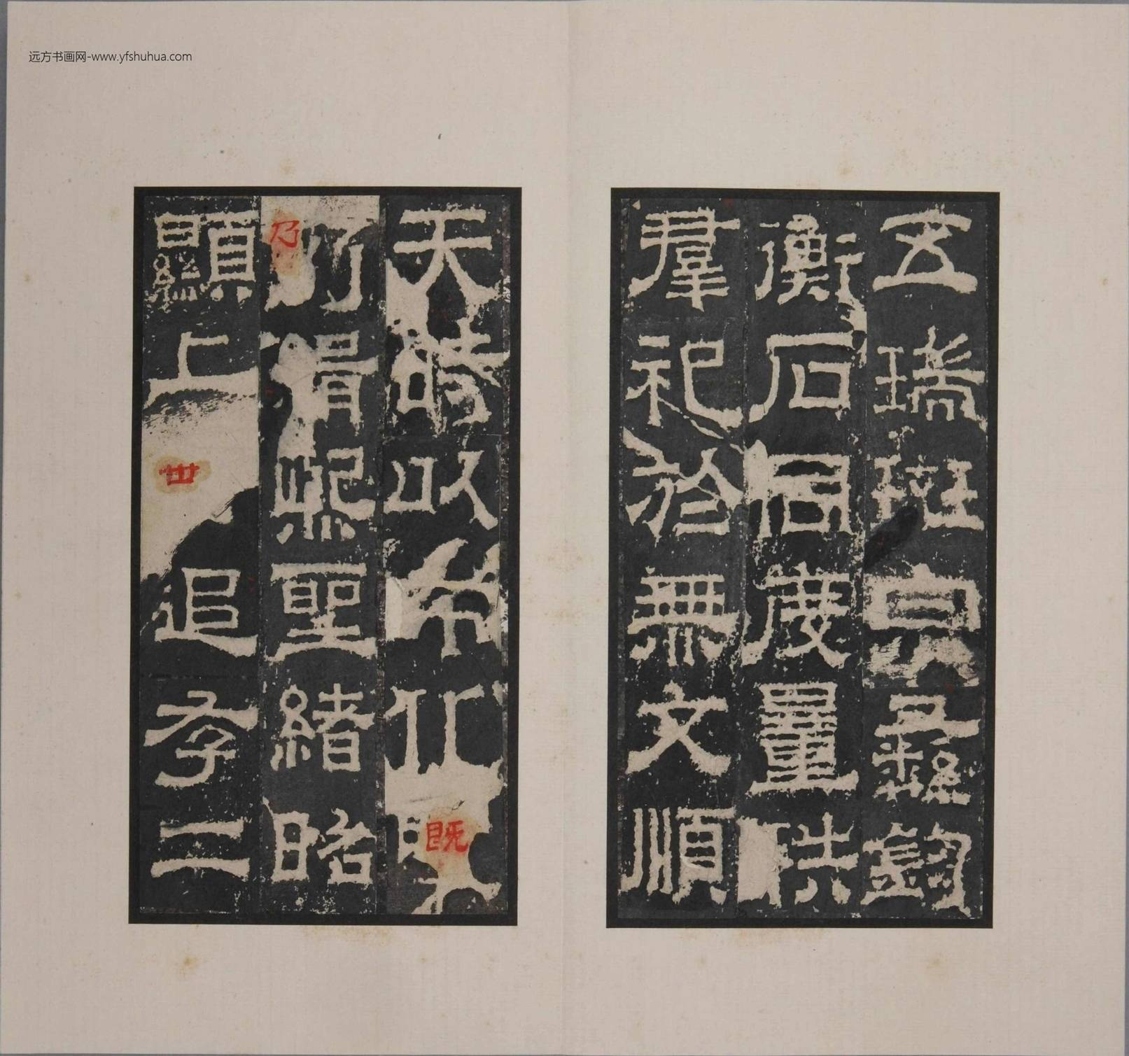 远方书画网-www.yfshuhua.com
五瑞班宗彝鈞
衡石同度量秩
羣祀於無文順
天時以布化既
乃緝熙聖緒昭
顯上世追存二